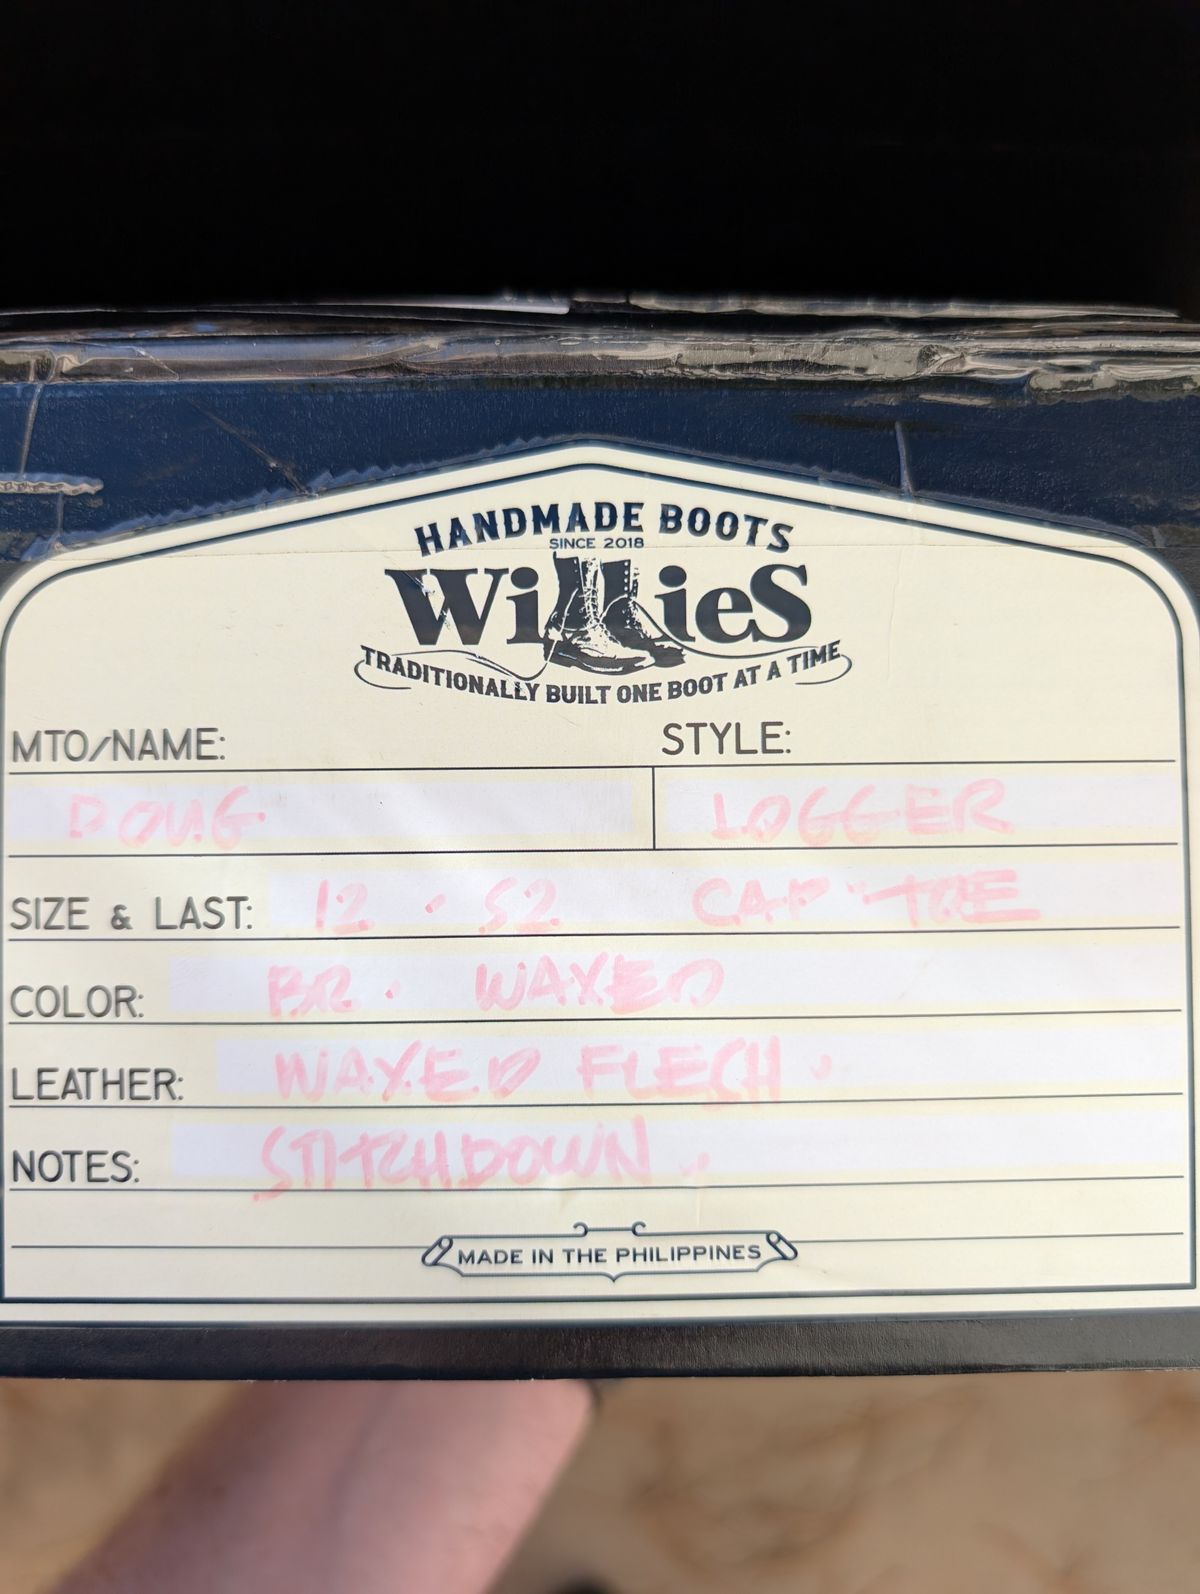 HANDMADE BOOTS
SINCE 2018
WillieS
TRADITIONALLY BUILT ONE BOOT AT A TIME
MTO/NAME: STYLE:
DOUG LOGGER
SIZE & LAST: 12 . S2 CAP-TOE
COLOR: BR. WAXED
LEATHER: WAXED FLESH.
NOTES: STITCHDOWN.
MADE IN THE PHILIPPINES